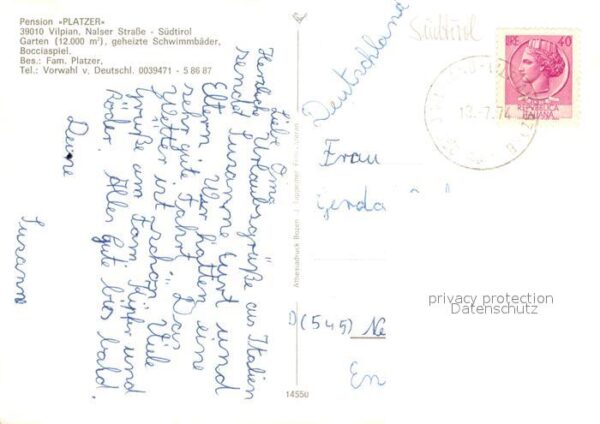 Pension »PLATZER«
39010 Vilpian, Nalser Straße - Südtirol
Garten (12.000 m²), geheizte Schwimmbäder,
Bocciaspiel.
Bes.: Fam. Platzer,
Tel.: Vorwahl v. Deutschl. 0039471 - 5 86 87
Liebe Oma
Herzliche Urlaubsgrüße aus Italien
sendet Susanne Gurt und
Eltern. Wir hatten eine
sehr gute Fahrt. Das
Wetter ist schön. Viele
Grüße am Fam. und
Röder. Alles Gute bis bald.
Deine
Susanne
Athesiadruck Bozen
14550
Deutschland
Südtirol
LIRE 40
ITALIANA
13.7.74
Frau
Gerda
D (545) Ne
En
privacy protection
Datenschutz